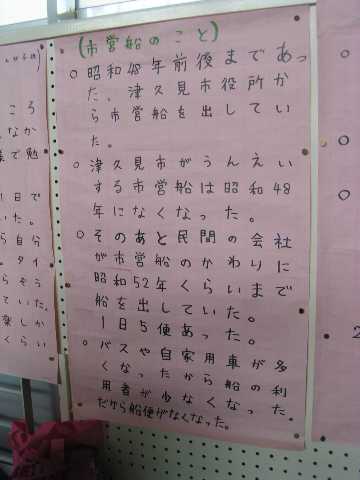 (市営船のこと)
○ 昭和48年前後まであっ
た、津久見市役所か
ら市営船を出してい
た。
○ 津久見市がうんえい
する市営船は昭和48
年になくなった。
○ そのあと民間の会社
が市営船のかわりに
昭和52年くらいまで
船を出していた。
1日5便あった。
○ バスや自家用車が多
くなったから船の利
用者が少なくなった。
だから船便がなくなった。
ころ
なか
で勉
1日で
いた。
ら自分
。タイ
らそう
ていた。
楽しか
くらい